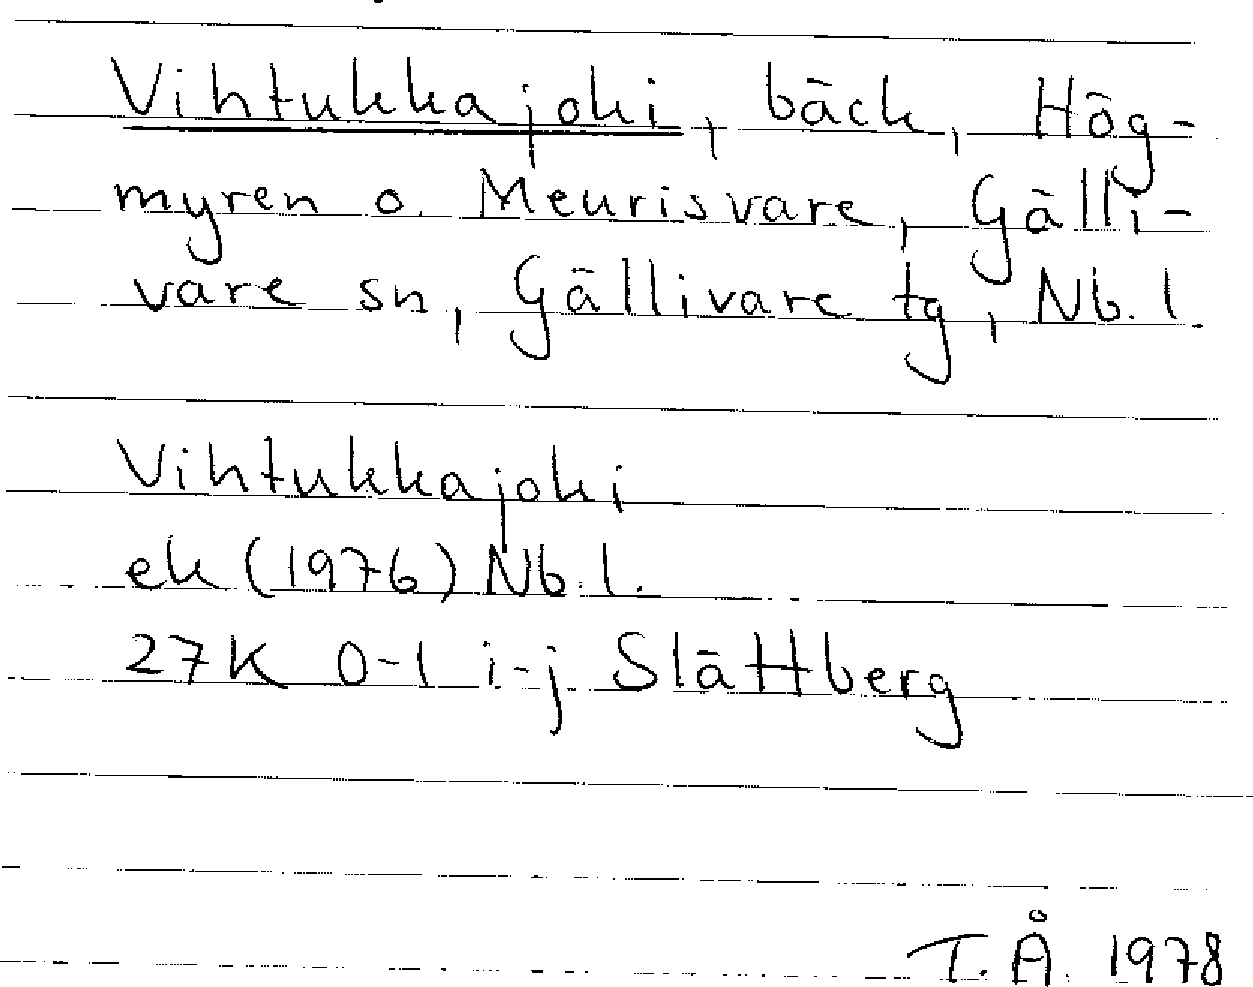 Vihtukkajoki, bäck, Hög-
myren o. Meurisvare, Gälli-
vare sn, Gällivare tg, Nb. l.
Vihtukkajoki
ek (1976) Nb. l.
27K 0-1 i-j Slättberg
T. Å. 1978